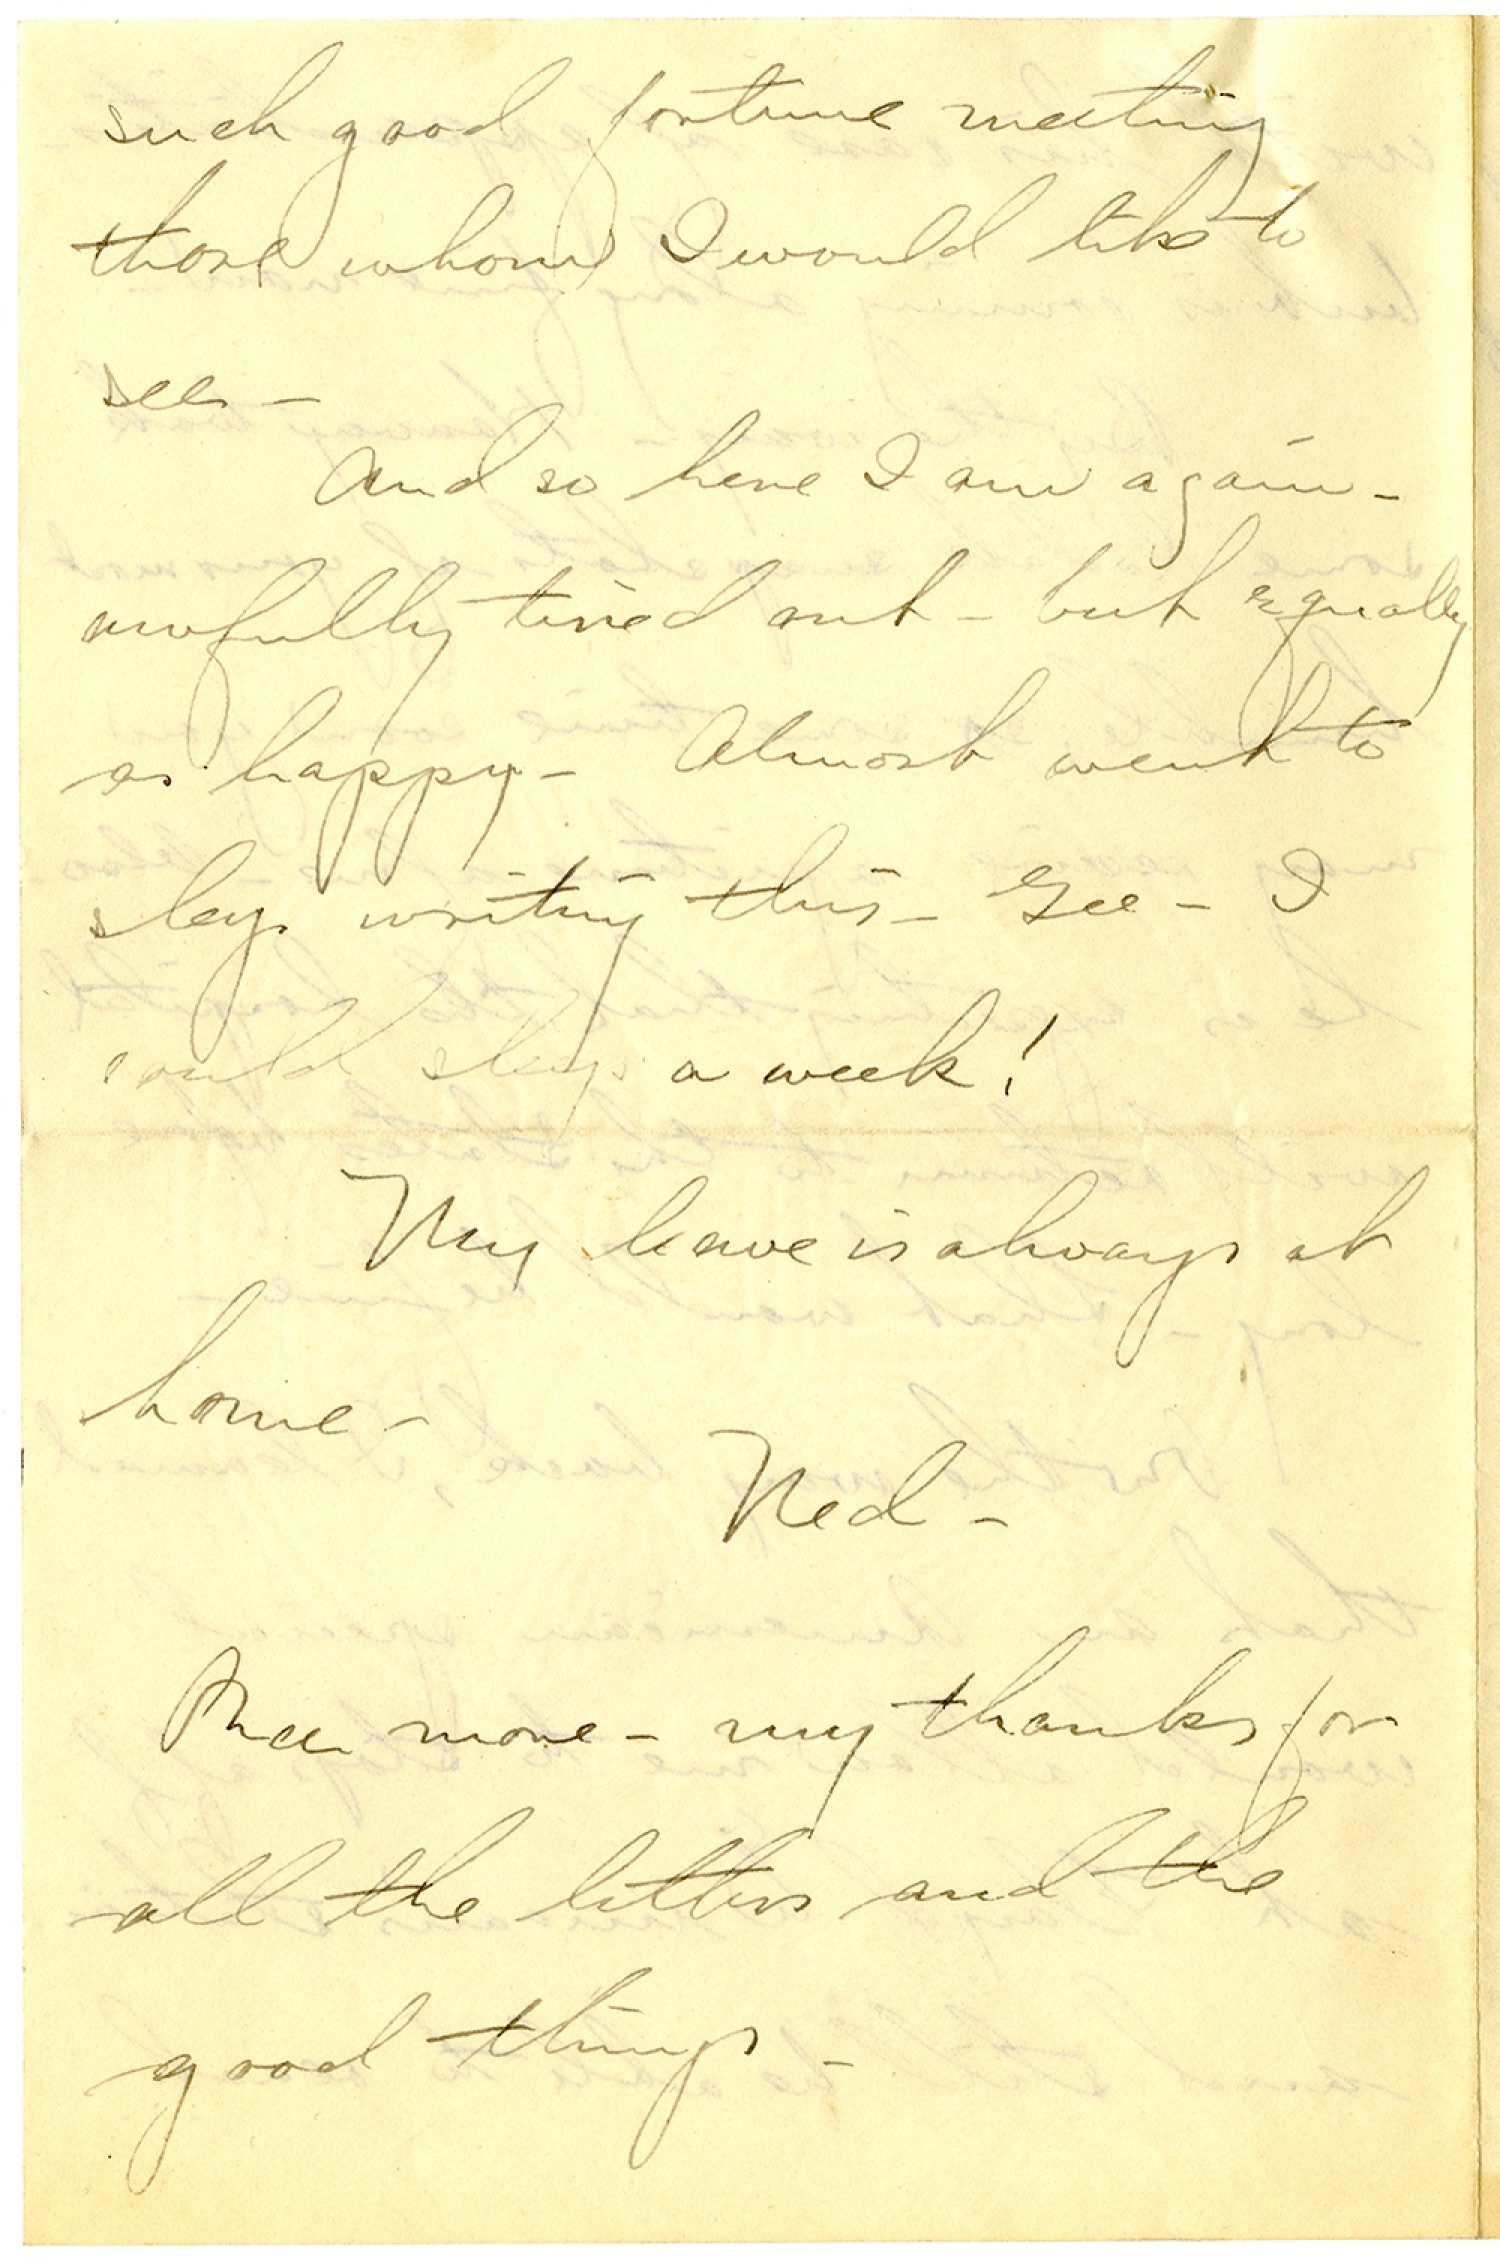 such good fortune meeting
those whom I would like to
see -
And so here I am again -
awfully tired out - but equally
as happy - Almost went to
sleep writing this - Gee - I
could sleep a week!
My love is always at
home -
Ned -
more - my thanks for
all the letters and the
good things -